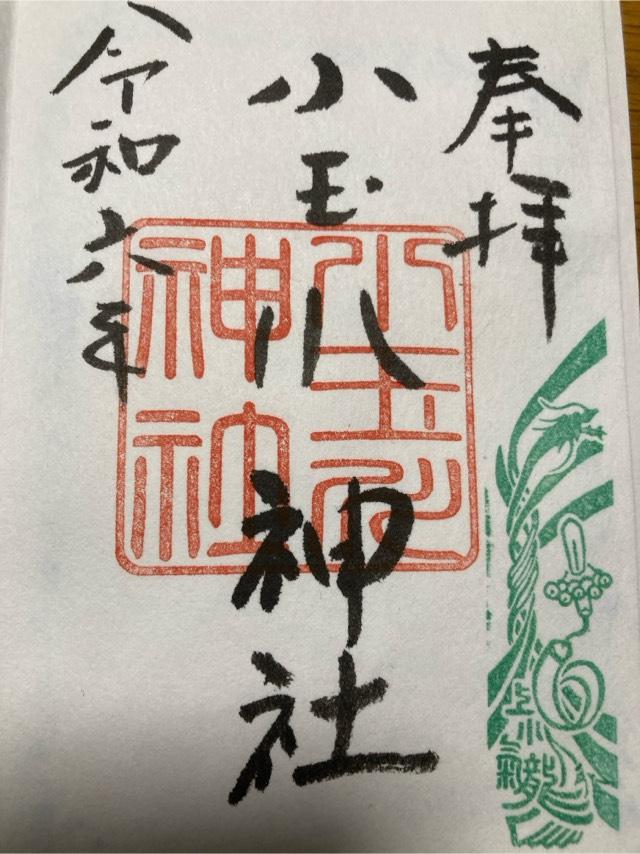 奉拝
小玉川神社
令和六年
小玉川
神社